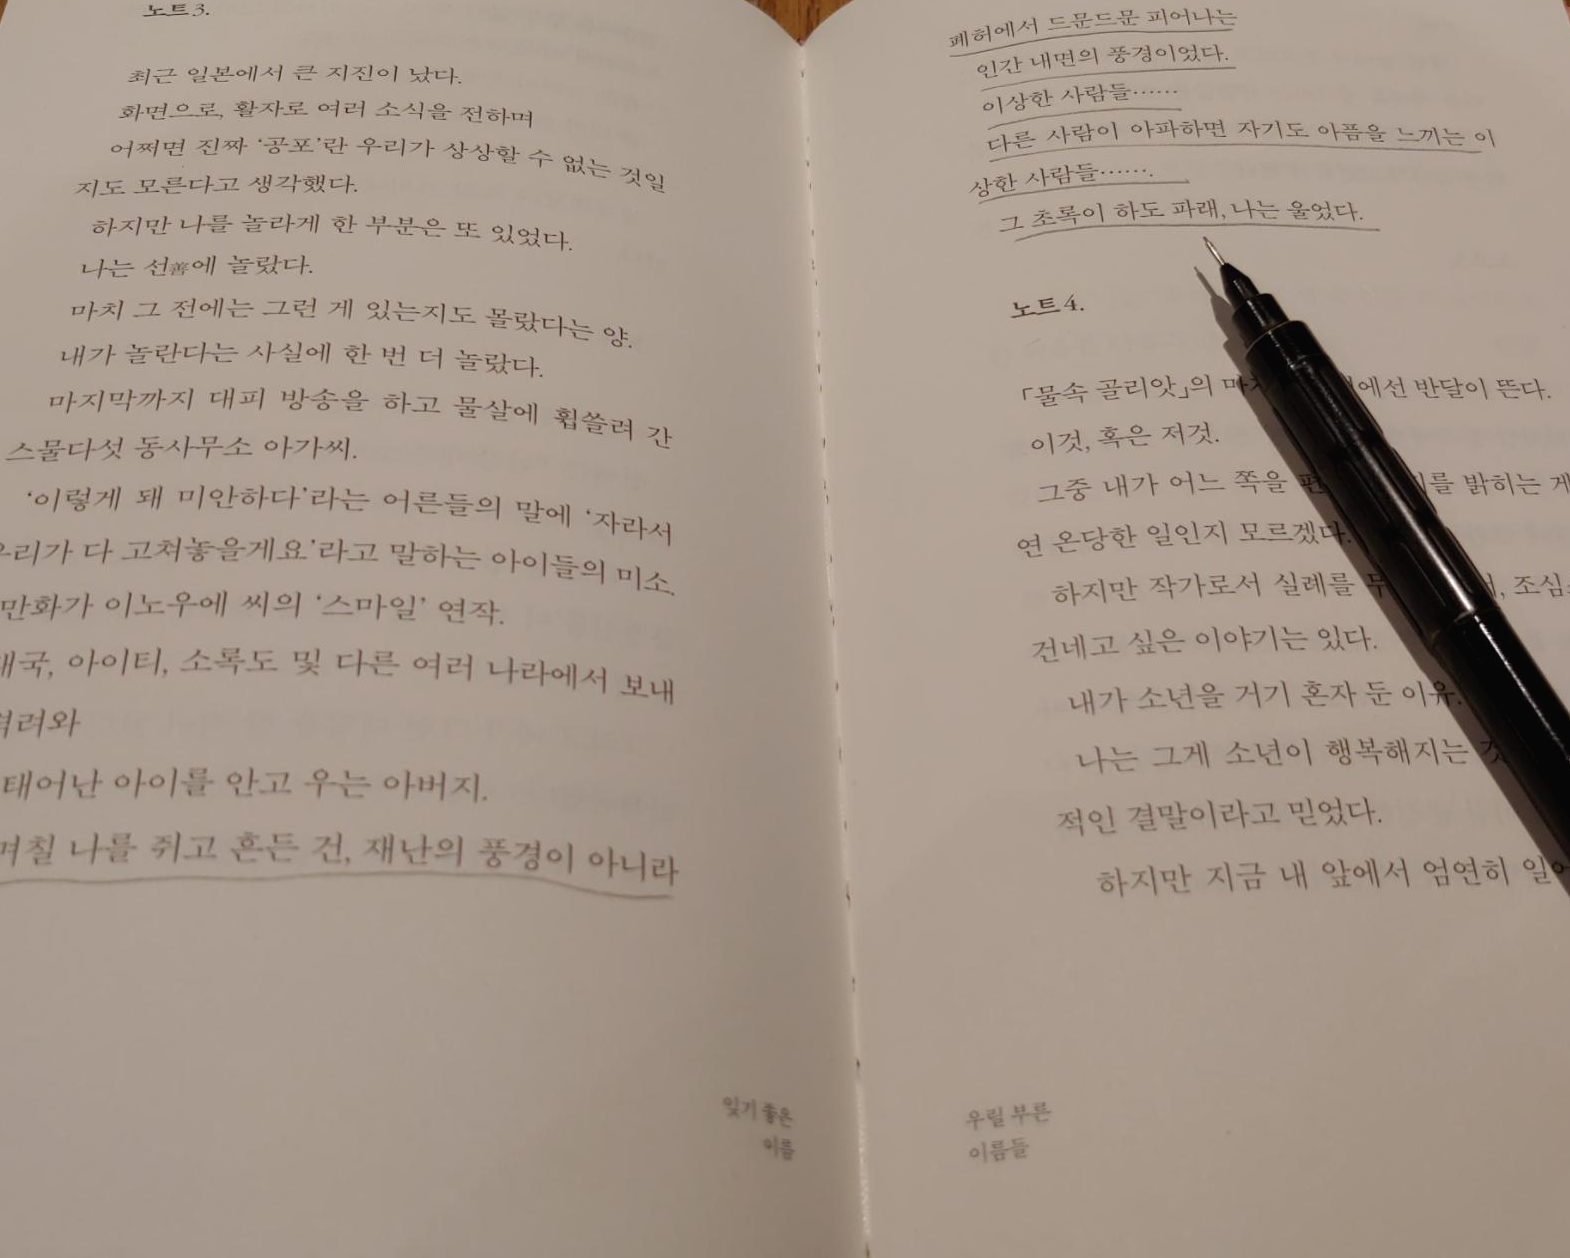 노트3.
최근 일본에서 큰 지진이 났다.
화면으로, 활자로 여러 소식을 전하며
어쩌면 진짜 ‘공포’란 우리가 상상할 수 없는 것일
지도 모른다고 생각했다.
하지만 나를 놀라게 한 부분은 또 있었다.
나는 선善에 놀랐다.
마치 그 전에는 그런 게 있는지도 몰랐다는 양.
내가 놀란다는 사실에 한 번 더 놀랐다.
마지막까지 대피 방송을 하고 물살에 휩쓸려 간
스물다섯 동사무소 아가씨.
‘이렇게 돼 미안하다’라는 어른들의 말에 ‘자라서
우리가 다 고쳐놓을게요’라고 말하는 아이들의 미소.
만화가 이노우에 씨의 ‘스마일’ 연작.
태국, 아이티, 소록도 및 다른 여러 나라에서 보내
격려와
태어난 아이를 안고 우는 아버지.
며칠 나를 쥐고 흔든 건, 재난의 풍경이 아니라
잊기 좋은
이름
폐허에서 드문드문 피어나는
인간 내면의 풍경이었다.
이상한 사람들……
다른 사람이 아파하면 자기도 아픔을 느끼는 이
상한 사람들…….
그 초록이 하도 파래, 나는 울었다.
노트4.
「물속 골리앗」의 에선 반달이 뜬다.
이것, 혹은 저것.
그중 내가 어느 쪽을 를 밝히는 게
연 온당한 일인지 모르겠다.
하지만 작가로서 실례를 조심
건네고 싶은 이야기는 있다.
내가 소년을 거기 혼자 둔 이유.
나는 그게 소년이 행복해지는
적인 결말이라고 믿었다.
하지만 지금 내 앞에서 엄연히
우릴 부른
이름들